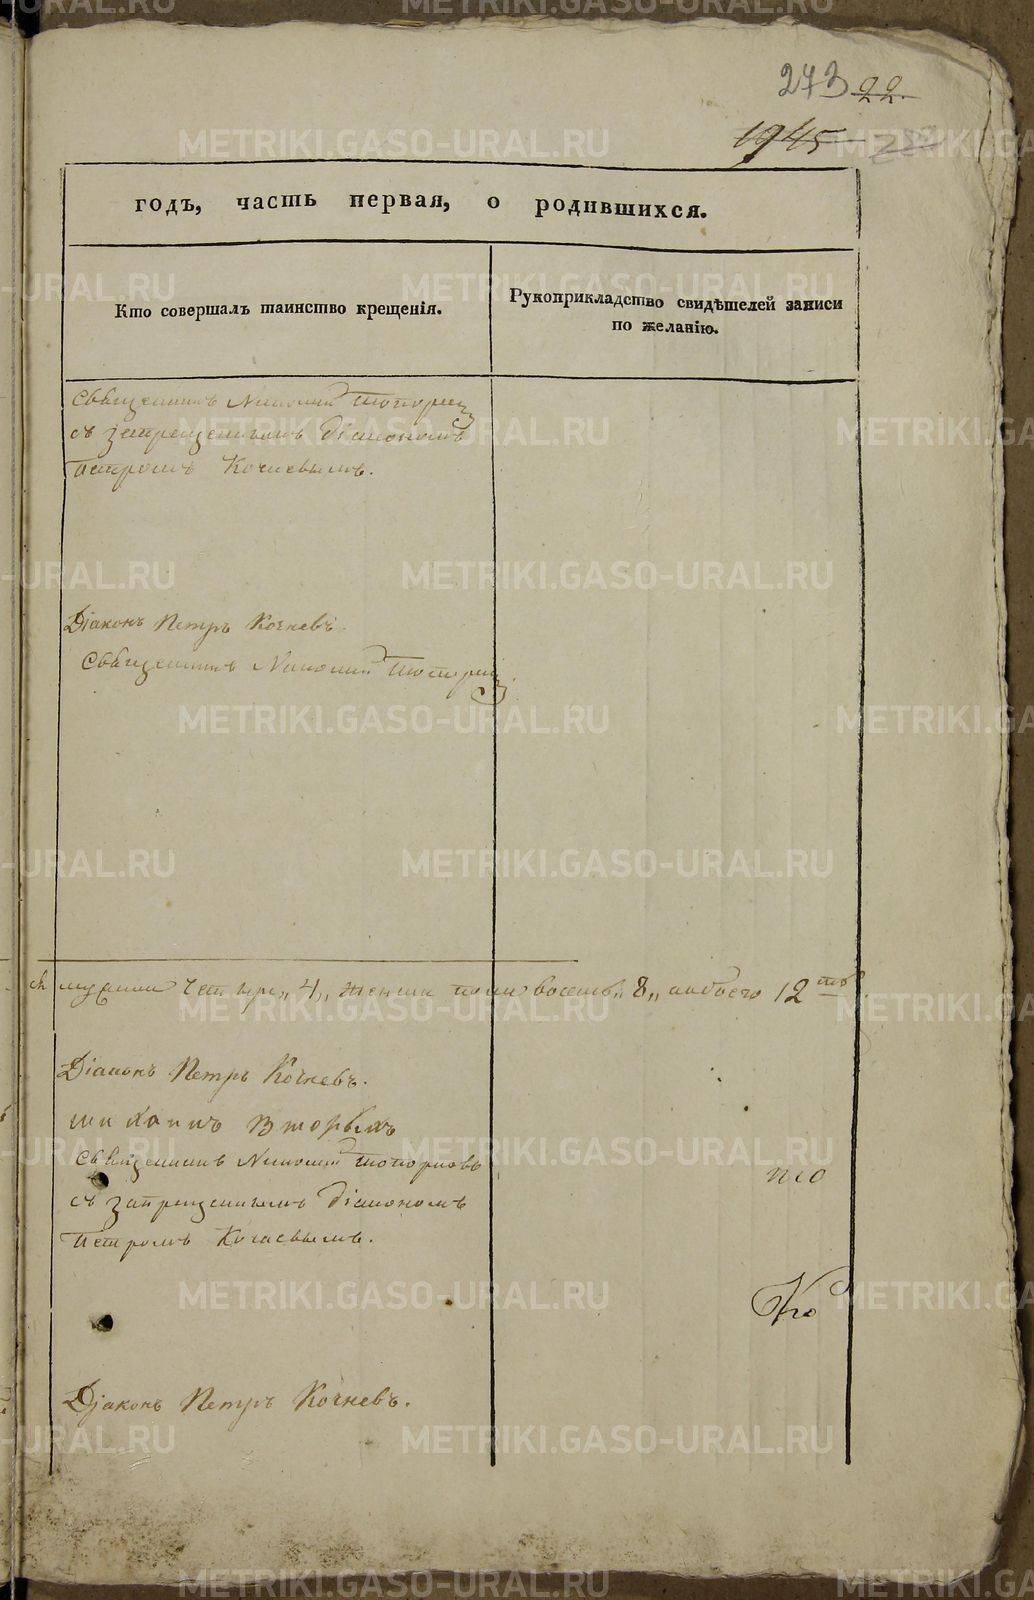 273 22.
1945
годъ, часть первая, о родившихся.
Кто совершалъ таинство крещенія.
Рукоприкладство свидѣтелей записи
по желанію.
Священникъ Николай Топорков
съ запрещеннымъ діакономъ
Петромъ Кочневымъ.
Діаконъ Петръ Кочневъ.
Священникъ Николай
четыре „4„ женска пола восемь „8„ обоего 12
Діаконъ Петръ Кочневъ.
вторыхъ
Священникъ Николай Топорковъ
съ запрещеннымъ діакономъ
Петромъ Кочневымъ.
Діаконъ Петръ Кочневъ.
METRIKI.GASO-URAL.RU